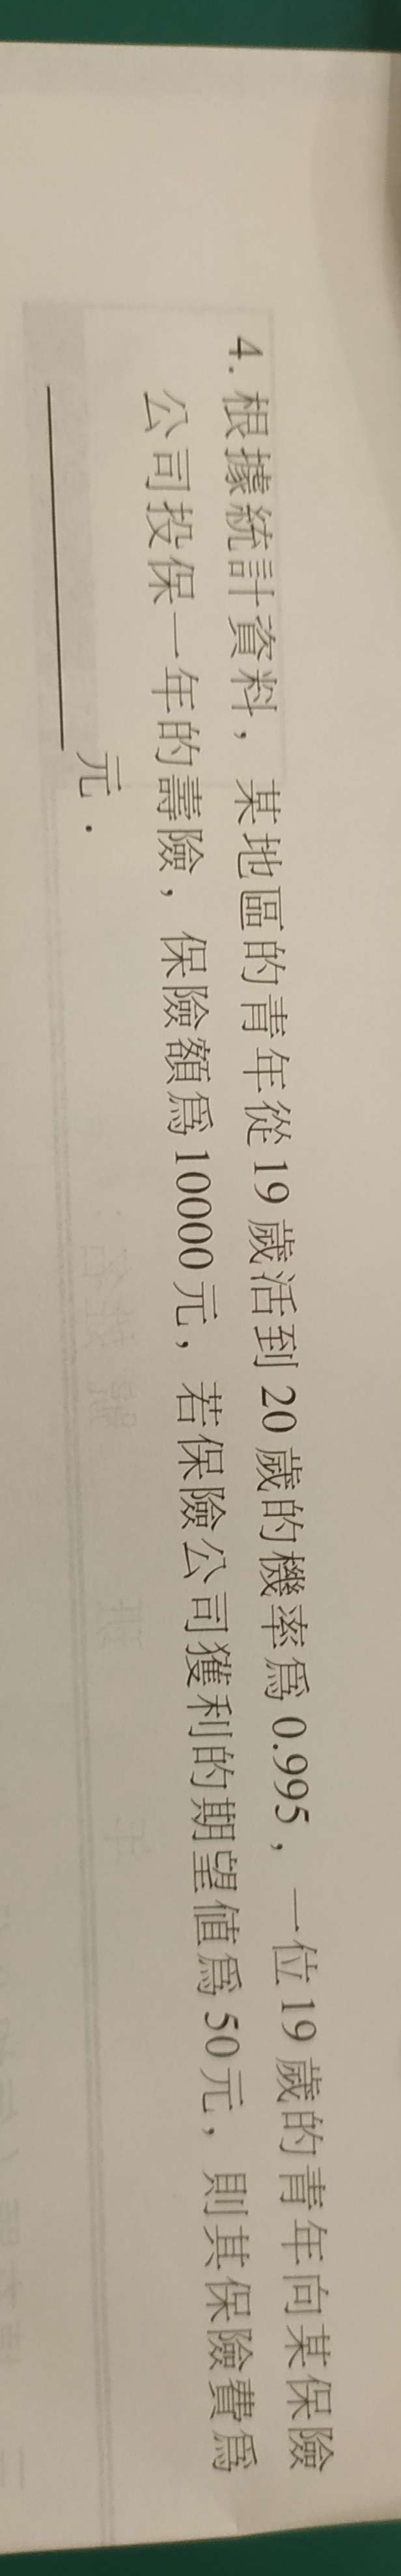 4. 根據統計資料，某地區的青年從19歲活到20歲的機率為0.995，一位19歲的青年向某保險
公司投保一年的壽險，保險額為10000元，若保險公司獲利的期望值為50元，則其保險費為
元．